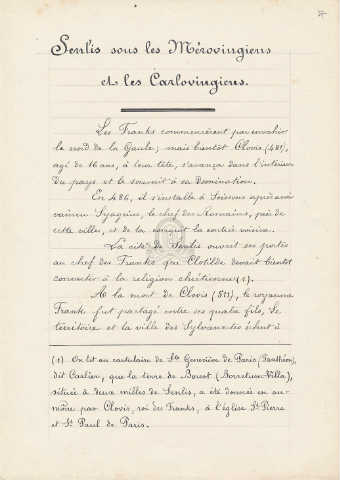 Senlis sous les Mérovingiens
et les Carlovingiens.
Les Franks commencèrent par envahir
le nord de la Gaule, mais bientôt Clovis (481),
agé de 16 ans, à leur tête, s'avança dans l'intérieur
du pays et le soumit à sa domination.
En 486, il s'installe à Soissons après avoir
vaincu Syagrius, le chef des Romains, près de
cette ville, et de là conquit la contrée voisine.
La cité de Senlis ouvrit ses portes
au chef des Franks que Clotilde devait bientôt
convertir à la religion chrétienne (1).
A la mort de Clovis (511), le royaume
Frank fut partagé entre ses quatre fils, le
territoire et la ville des Sylvanectes échut à
(1) On lit au cartulaire de Ste Geneviève de Paris (Panthéon),
dit Carlier, que la terre de Borest (Borretum-Villa),
située à deux milles de Senlis, a été donnée en au-
mône par Clovis, roi des Franks, à l'église St Pierre
et St Paul de Paris.